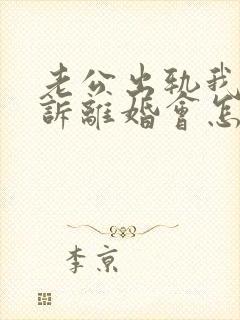 老公出轨我
訴離婚會怎
李京